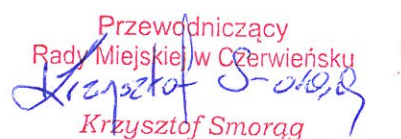 Przewodniczący
Rady Miejskiej w Czerwieńsku
Krzysztof
Krzysztof Smorąg